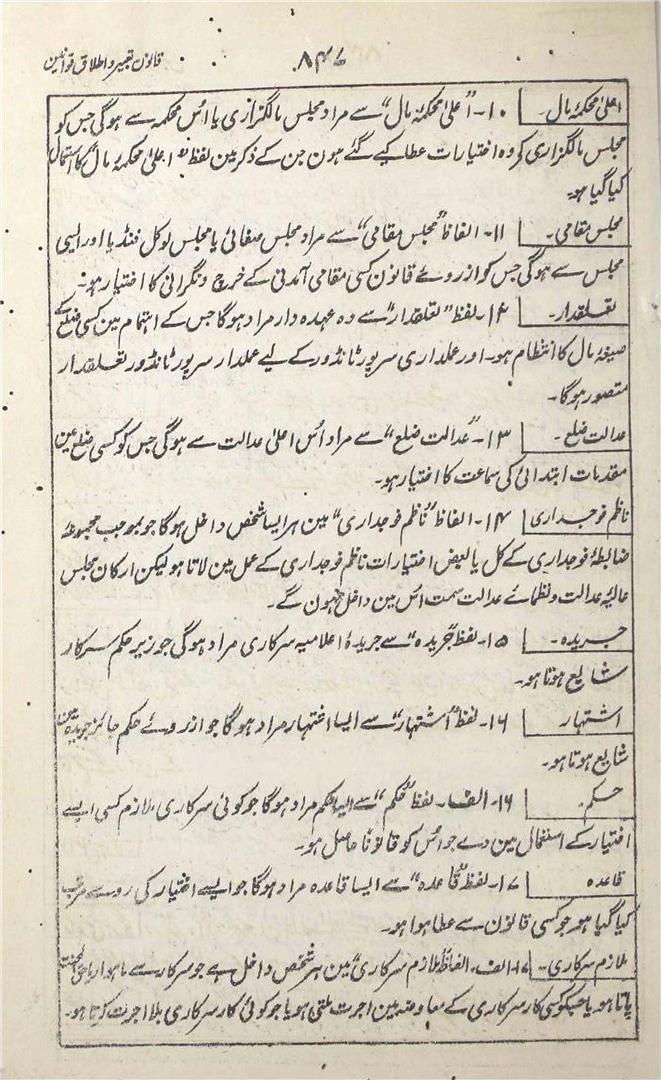 ۸۴۷
قانون تعبیر و اطلاق قوانین
اعلیٰ محکمہ مال۔ ۱۰۔ "اعلیٰ محکمۂ مال" سے مراد مجلس مالگزاری یا اُس محکمہ سے ہوگی جس کو
مجلس مالگزاری کے وہ اختیارات عطا کیے گئے ہون جن کے ذکر مین لفظ "اعلیٰ محکمۂ مال" کا استعمال
کیا گیا ہو۔
مجلس مقامی۔ ۱۱۔ الفاظ "مجلس مقامی" سے مراد مجلس صفائی یا مجلس لوکل فنڈ یا اور ایسی
مجلس سے ہوگی جس کو از روئے قانون کسی مقامی آمدنی کے خرچ و نگرانی کا اختیار ہو۔
تعلقدار۔ ۱۲۔ لفظ "تعلقدار" سے وہ عہدہ دار مراد ہوگا جس کے اہتمام مین کسی ضلع کے
صیغۂ مال کا انتظام ہو۔ اور عملداری سرپور ٹانڈور کے لیے عملدار سرپور ٹانڈور تعلقدار
متصور ہوگا۔
عدالت ضلع۔ ۱۳۔ "عدالت ضلع" سے مراد اُس اعلیٰ عدالت سے ہوگی جس کو کسی ضلع مین
مقدمات ابتدائی کی سماعت کا اختیار ہو۔
ناظم فوجداری ۱۴۔ الفاظ "ناظم فوجداری" مین ہر ایسا شخص داخل ہوگا جو بموجب مجموعۂ
ضابطۂ فوجداری کے کل یا بعض اختیارات ناظم فوجداری کے عمل مین لاتا ہو لیکن ارکان مجلس
عالیہ عدالت و نظمائے عدالت سمت اس مین داخل ہون گے۔
جریدہ۔ ۱۵۔ لفظ "جریدہ" سے جریدۂ اعلامیہ سرکاری مراد ہوگی جو زیر حکم سرکار
شایع ہوتا ہو۔
اشتہار ۱۶۔ لفظ "اشتہار" سے ایسا اشتہار مراد ہوگا جو از روئے حکم جائز جریدہ مین
شایع ہوتا ہو۔
حکم۔ ۱۶۔ الف۔ لفظ "حکم" سے ایسا حکم مراد ہوگا جو کوئی سرکاری ملازم کسی ایسے
اختیار کے استعمال مین دے جو اُس کو قانوناً حاصل ہو۔
قاعدہ ۱۷۔ لفظ "قاعدہ" سے ایسا قاعدہ مراد ہوگا جو ایسے اختیار کی رو سے مرتب
کیا گیا ہو جو کسی قانون سے عطا ہوا ہو۔
ملازم سرکاری۔ ۱۷۔ الف۔ الفاظ "ملازم سرکاری" مین ہر شخص داخل ہے جو سرکار سے ماہوار یا
پاتا ہو یا جسکو کسی کار سرکاری کے معاوضہ مین اجرت ملتی ہو یا جو کوئی کار سرکاری بلا اجرت کرتا ہو۔